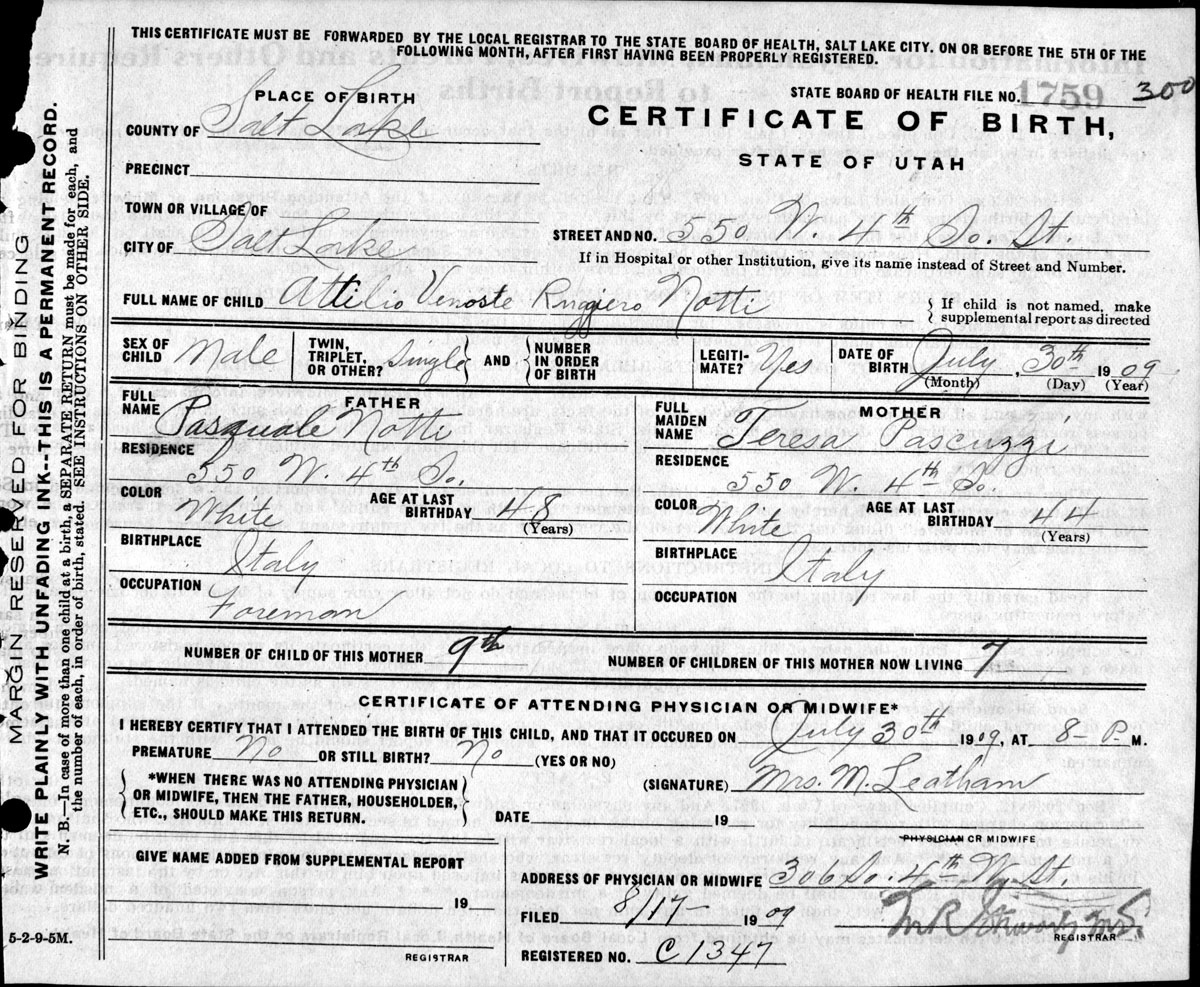 THIS CERTIFICATE MUST BE FORWARDED BY THE LOCAL REGISTRAR TO THE STATE BOARD OF HEALTH, SALT LAKE CITY. ON OR BEFORE THE 5TH OF THE
FOLLOWING MONTH, AFTER FIRST HAVING BEEN PROPERLY REGISTERED.
STATE BOARD OF HEALTH FILE NO. 1759 300
PLACE OF BIRTH
CERTIFICATE OF BIRTH,
STATE OF UTAH
COUNTY OF Salt Lake
PRECINCT
TOWN OR VILLAGE OF
CITY OF Salt Lake
STREET AND NO. 550 W. 4th So. St.
If in Hospital or other Institution, give its name instead of Street and Number.
FULL NAME OF CHILD Attilio Venoste Ruggiero Notti { If child is not named, make
supplemental report as directed
SEX OF CHILD Male
TWIN, TRIPLET, OR OTHER? Single AND { NUMBER IN ORDER OF BIRTH
LEGITI- MATE? Yes
DATE OF BIRTH July, 30th 1909
(Month) (Day) (Year)
FATHER
FULL NAME Pasquale Notti
RESIDENCE 550 W. 4th So.
COLOR White AGE AT LAST BIRTHDAY 48
(Years)
BIRTHPLACE Italy
OCCUPATION Foreman
MOTHER
FULL MAIDEN NAME Teresa Pascuzzi
RESIDENCE 550 W. 4th So.
COLOR White AGE AT LAST BIRTHDAY 44
(Years)
BIRTHPLACE Italy
OCCUPATION
NUMBER OF CHILD OF THIS MOTHER 9th NUMBER OF CHILDREN OF THIS MOTHER NOW LIVING 7
CERTIFICATE OF ATTENDING PHYSICIAN OR MIDWIFE*
I HEREBY CERTIFY THAT I ATTENDED THE BIRTH OF THIS CHILD, AND THAT IT OCCURED ON July 30th 1909, AT 8- P M.
PREMATURE No OR STILL BIRTH? No (YES OR NO)
{ *WHEN THERE WAS NO ATTENDING PHYSICIAN
OR MIDWIFE, THEN THE FATHER, HOUSEHOLDER,
ETC., SHOULD MAKE THIS RETURN. }
(SIGNATURE) Mrs. M. Leatham
DATE 19
PHYSICIAN OR MIDWIFE
GIVE NAME ADDED FROM SUPPLEMENTAL REPORT
19
REGISTRAR
ADDRESS OF PHYSICIAN OR MIDWIFE 306 So. 4th W. St.
FILED 8/17- 1909
REGISTRAR
REGISTERED NO. C 1347
5-2-9-5M.
MARGIN RESERVED FOR BINDING
WRITE PLAINLY WITH UNFADING INK--THIS IS A PERMANENT RECORD.
N. B.—In case of more than one child at a birth, a SEPARATE RETURN must be made for each, and
the number of each, in order of birth, stated. SEE INSTRUCTIONS ON OTHER SIDE.